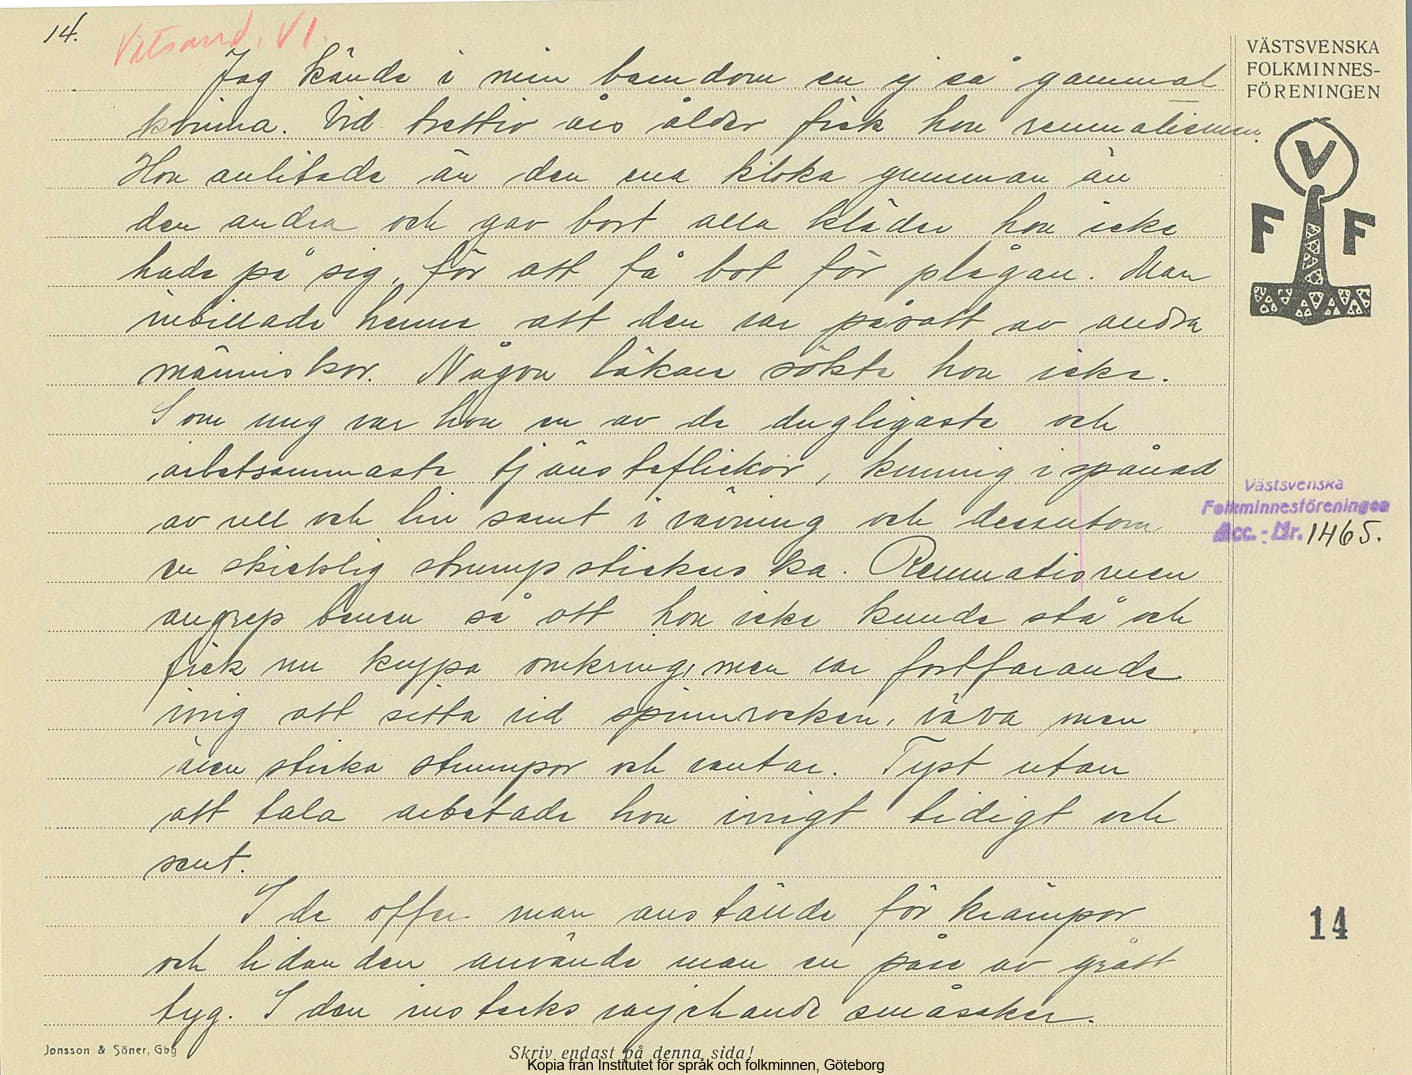 14.
Vitsand. VI.
Jag kände i min barndom en ej så gammal
kvinna. Vid trettio års ålder fick hon reumatismen.
Hon anlitade än den ena kloka gumman än
den andra och gav bort alla kläder hon icke
hade på sig, för att få bot för plågan. Man
inbillade henne att den var påsatt av andra
människor. Någon läkare sökte hon icke.
Som ung var hon en av de dugligaste och
arbetsammaste tjänsteflickor, kunnig i spånad
av ull och lin samt i vävning och dessutom
en skicklig strumpstickerska. Reumatismen
angrep benen så att hon icke kunde stå och
fick nu krypa omkring, men var fortfarande
ivrig att sitta vid spinnrocken, väva men
även sticka strumpor och vantar. Tyst utan
att tala arbetade hon ivrigt tidigt och
sent.
I de offer man anstände för krämpor
och lidanden använde man en påse av grått
tyg. I den insteks varjehanda småsaker.
VÄSTSVENSKA
FOLKMINNES-
FÖRENINGEN
V
F F
Västsvenska
Folkminnesföreningen
Acc. - Nr. 1465.
14
Jonsson & Söner, Gbg
Skriv endast på denna sida!
Kopia från Institutet för språk och folkminnen, Göteborg